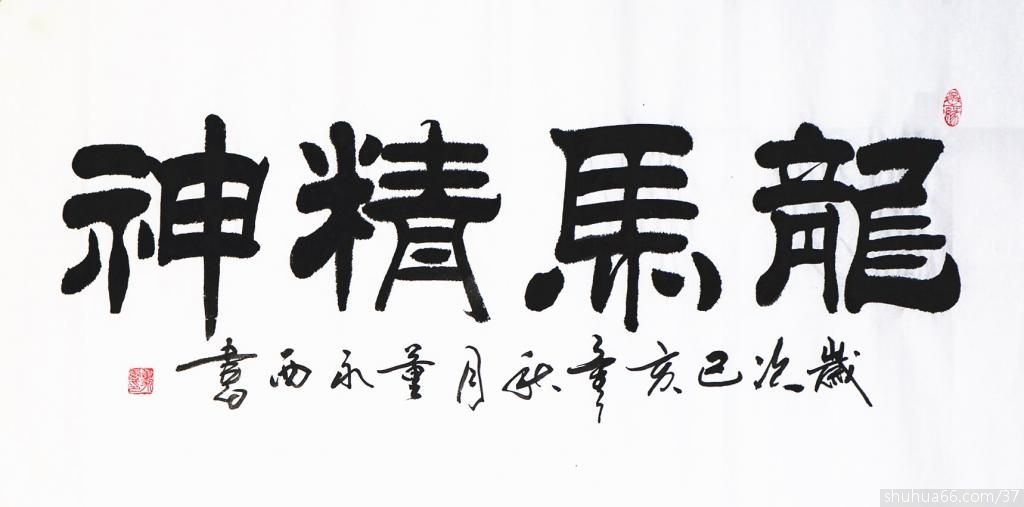 龍馬精神
歲次己亥年秋月董永西書
shuhua66.com/37